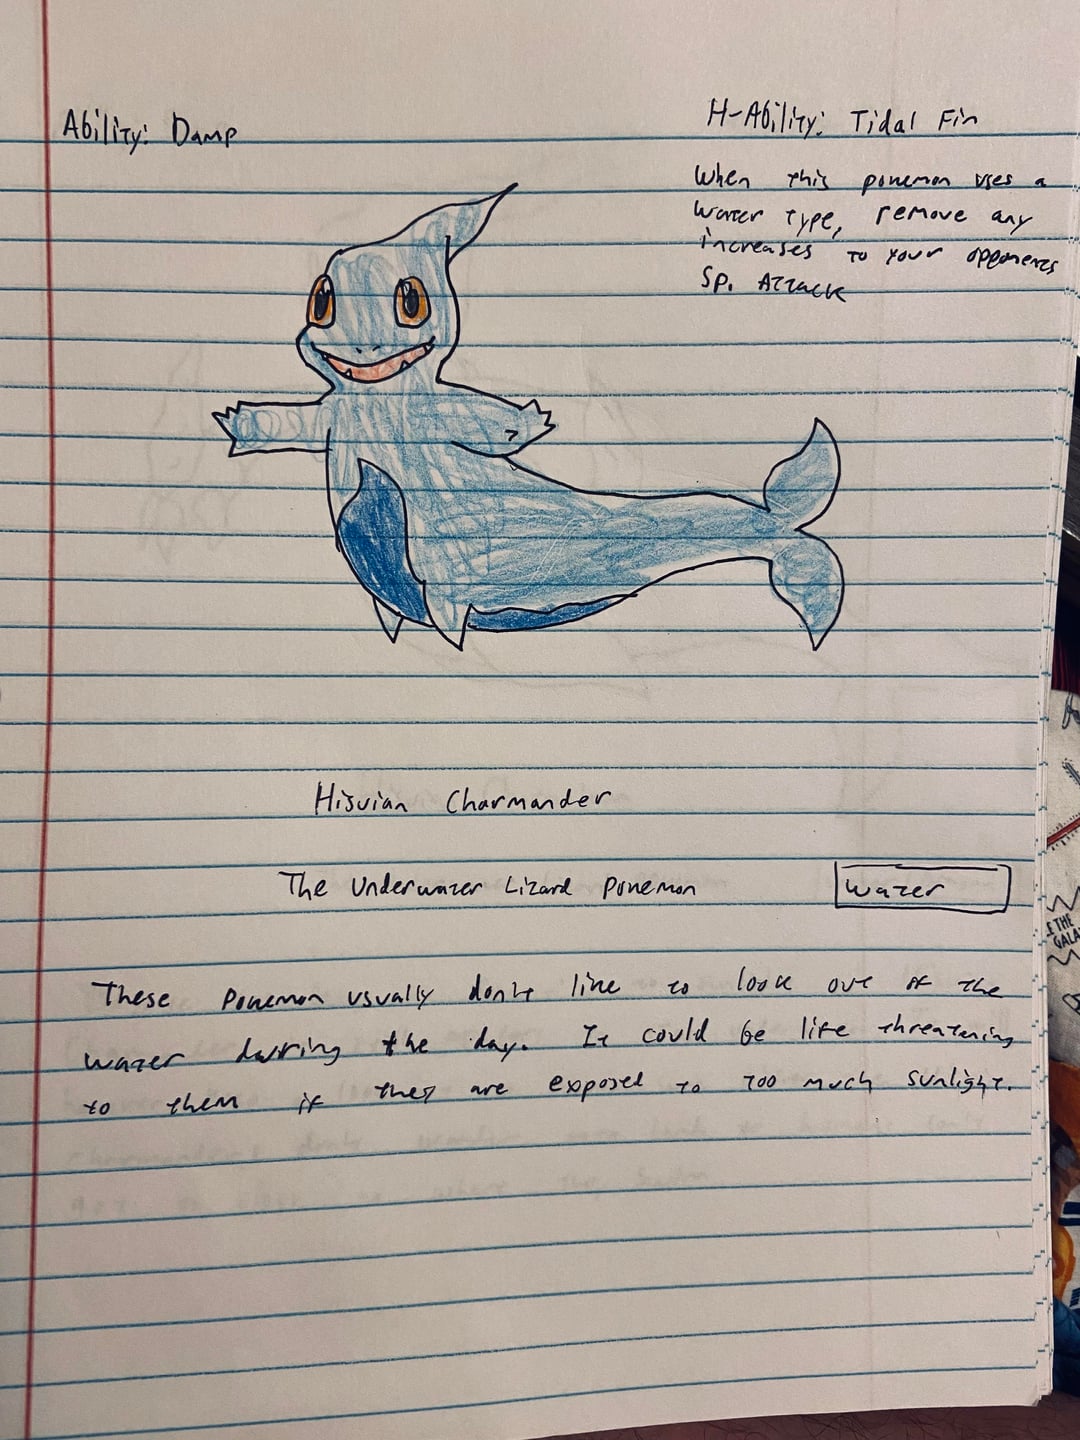 Ability: Damp
H-Ability: Tidal Fin
When this pokemon uses a
water type, remove any
increases to your opponents
Sp. Attack
Hisuian Charmander
The Underwater Lizard Pokemon
Water
These Pokemon usually don't like to look out of the
water during the day. It could be life threatening
to them if they are exposed to too much sunlight.
E THE
GALA